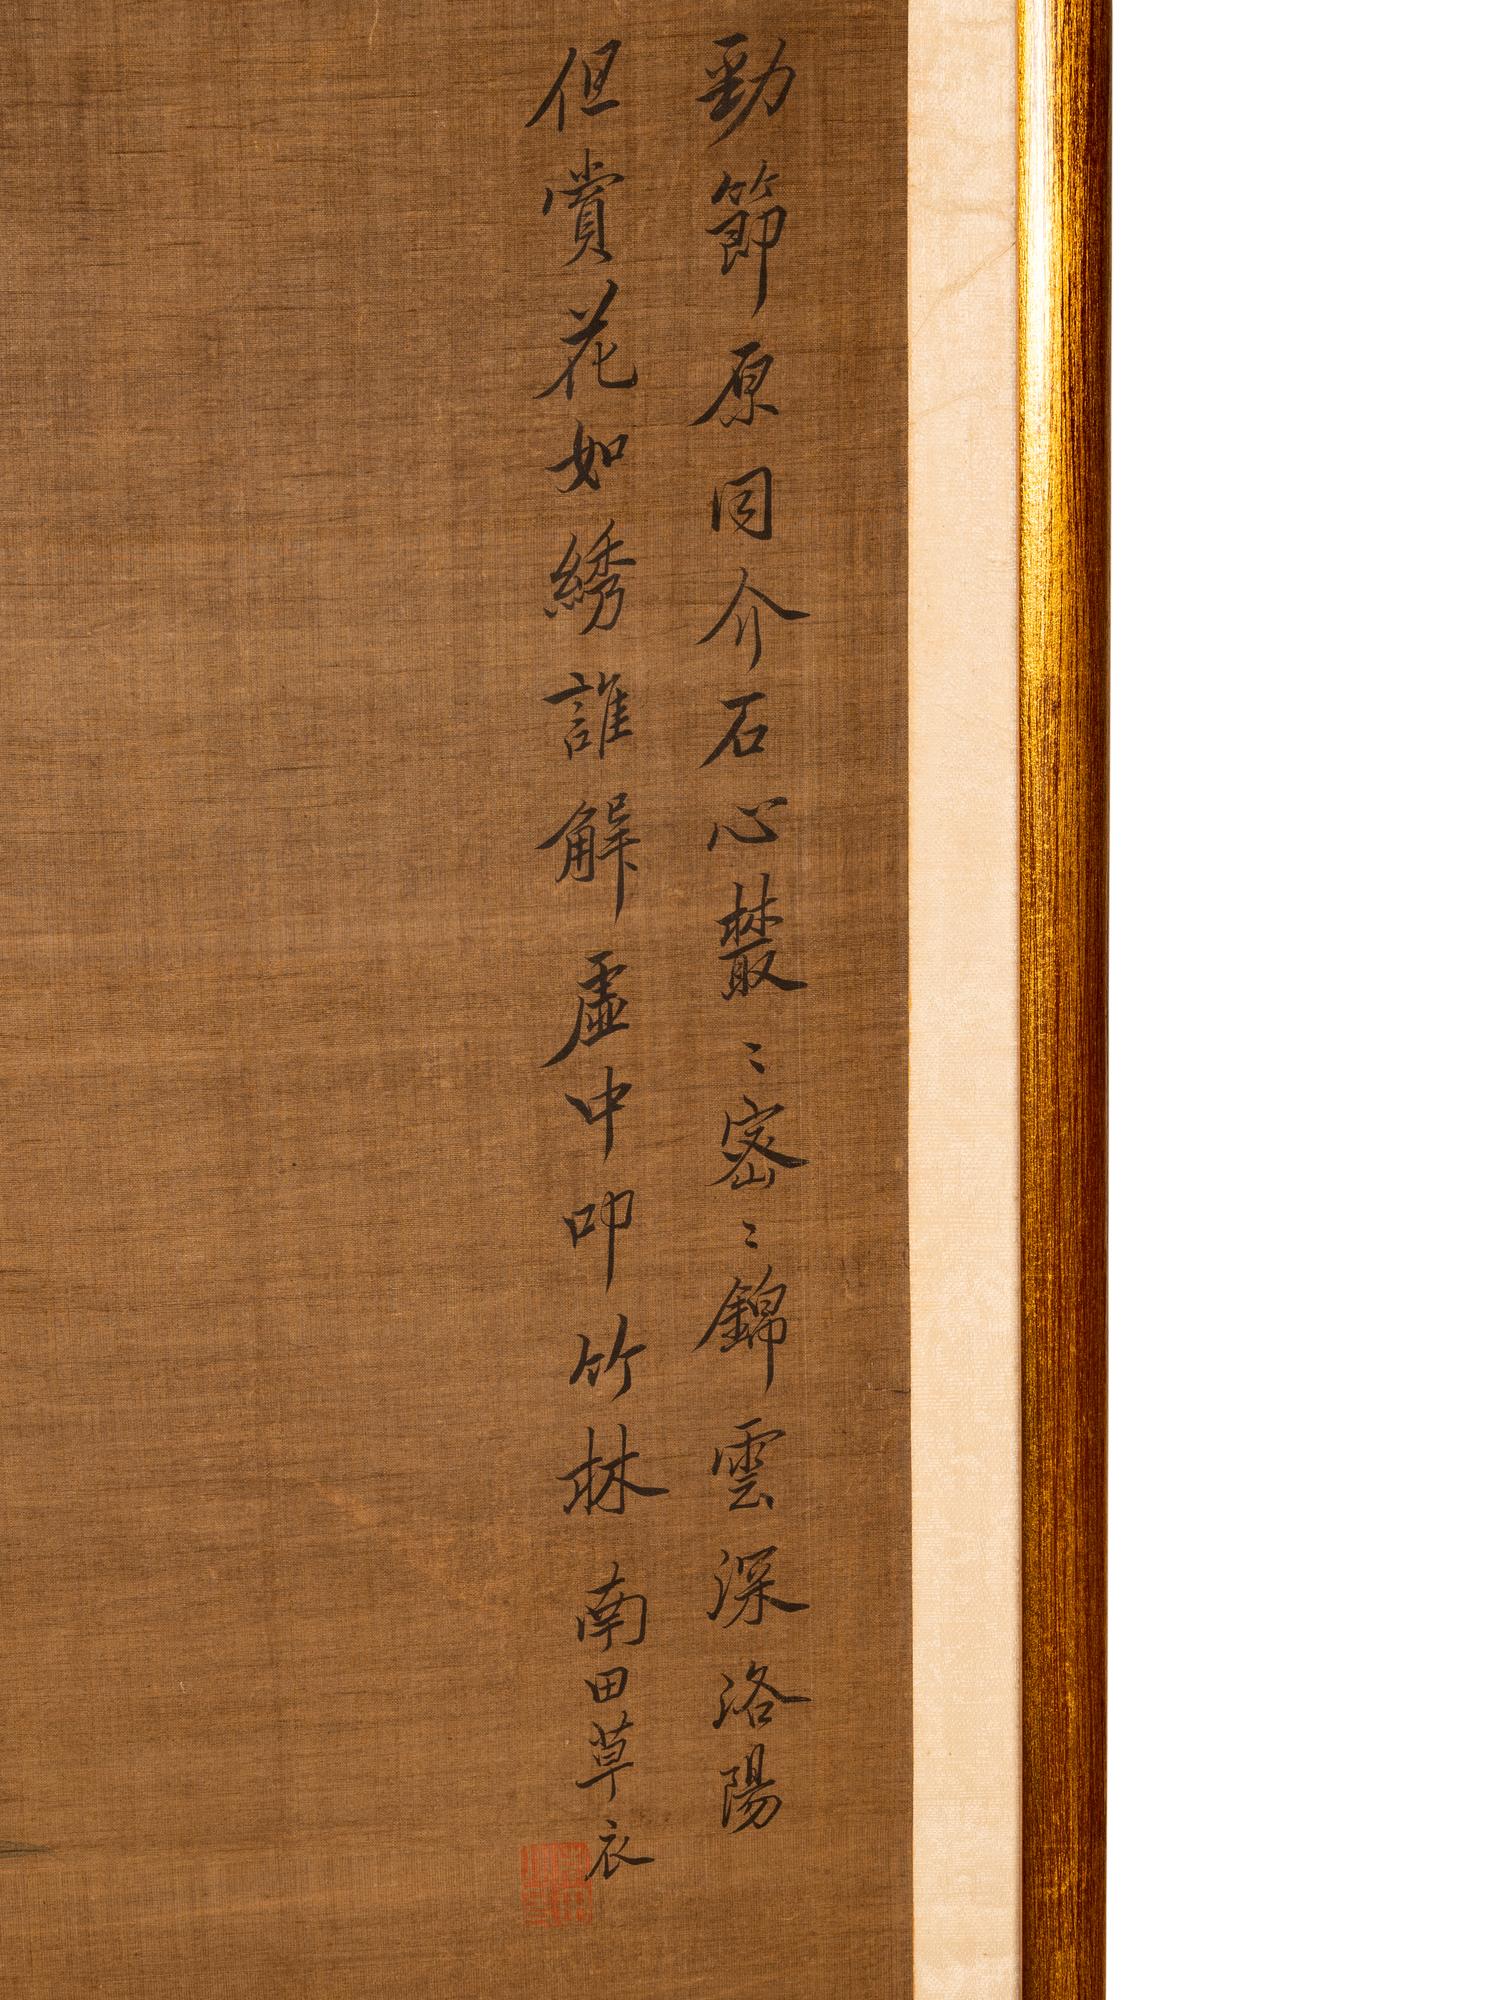 勁節原同介石心叢〻密〻錦雲深洛陽
但賞花如綉誰解虛中叩竹林南田草衣